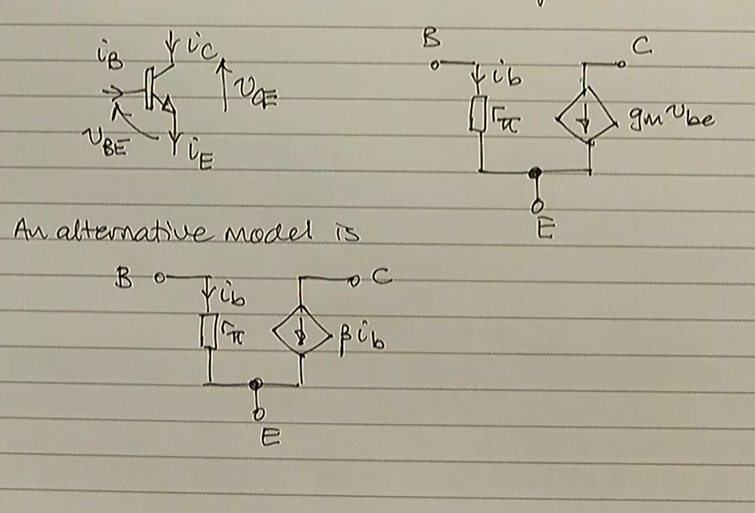 iB iC vCE
vBE iE
B C
ib rπ gm vbe
E
An alternative model is
B C
ib rπ β ib
E